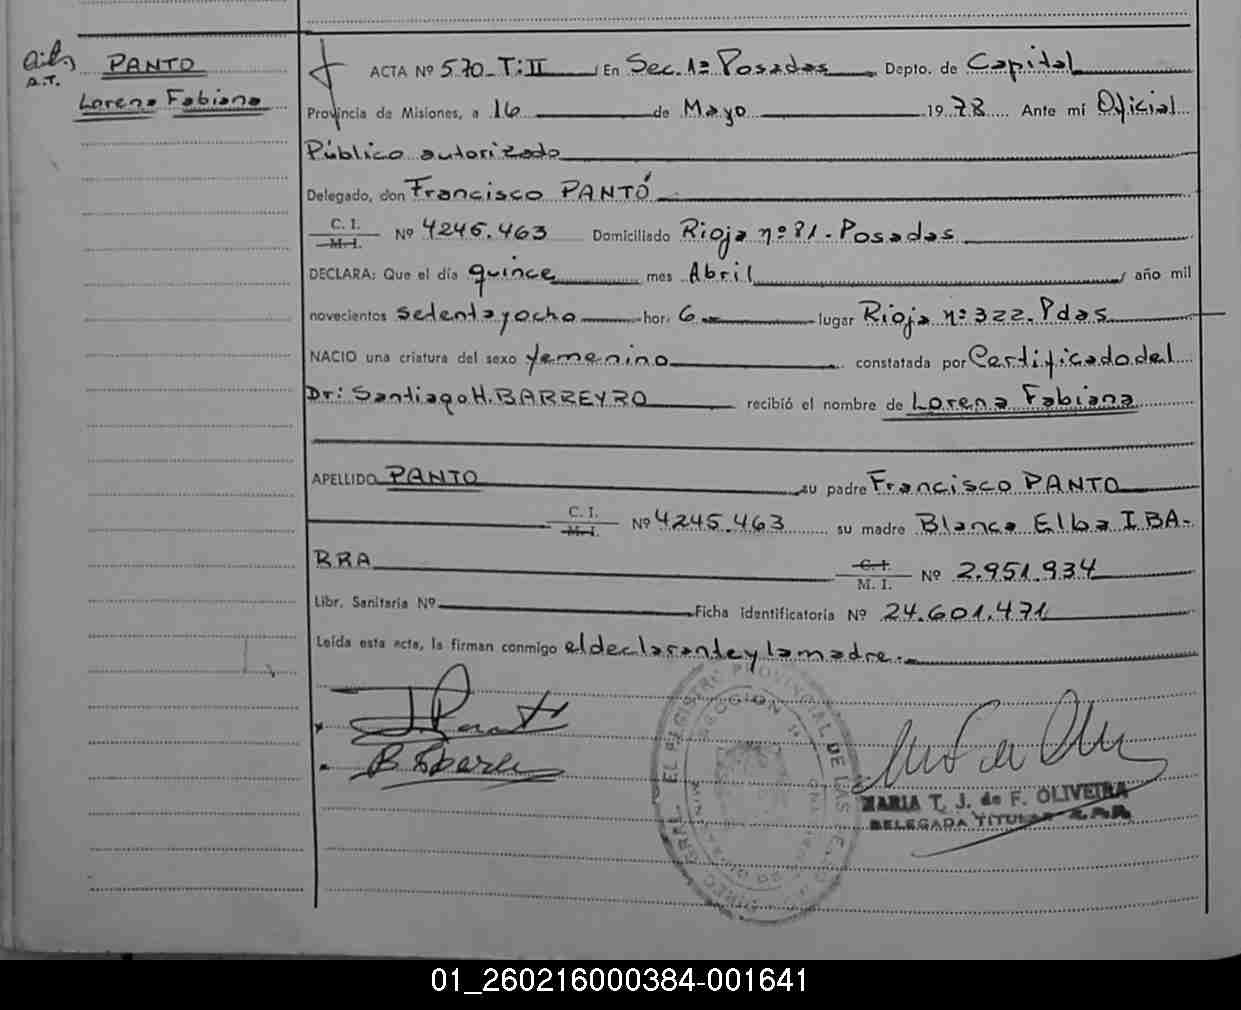 PANTO
A.T.
Lorena Fabiana
ACTA Nº 570 T: II En Sec. 1ª Posadas Depto. de Capital
Provincia de Misiones, a 16 de Mayo 1978 Ante mí Oficial
Público autorizado
Delegado, don Francisco PANTÓ
C. I.
M. I.
Nº 4245.463 Domiciliado Rioja nº 81.- Posadas
DECLARA: Que el día quince mes Abril, año mil
novecientos setentayocho hor. 6 lugar Rioja nº 322. Pdas
NACIO una criatura del sexo femenino constatada por Certificado del
Dr: Santiago H. BARREYRO recibió el nombre de Lorena Fabiana
APELLIDO PANTO su padre Francisco PANTO
C. I.
M. I.
Nº 4245.463 su madre Blanca Elba IBA-
RRA
C. I.
M. I.
Nº 2.951.934
Libr. Sanitaria Nº Ficha identificatoria Nº 24.601.471
Leída esta acta, la firman conmigo el declarante y la madre.-
REGISTRO PROVINCIAL DE LAS
SECCION 1ª
MARIA T. J. de F. OLIVEIRA
DELEGADA TITULAR
01_260216000384-001641